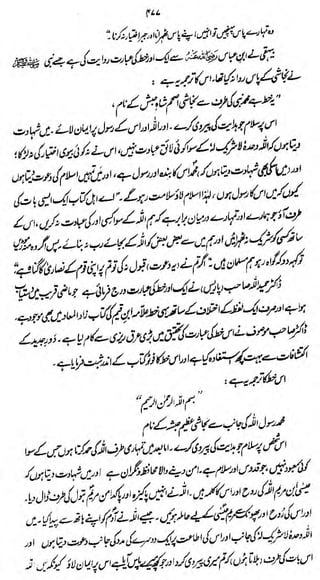 ۴۷۷
وہ تمہارے پاس پہنچیں تو انہیں، اپنے پاس ٹھہرانا اور جبر اختیار نہ کرنا۔"
بیہقی نے ابن عباس رضی اللہ عنہ سے ایک اور خط کی عبارت روایت کی ہے جسے نبی ﷺ
نے نجاشی کے پاس روانہ کیا تھا۔ اس کا ترجمہ یہ ہے:
"یہ خط ہے محمد نبی کی طرف سے نجاشی اصحم شاہ حبش کے نام،
اس پر سلام جو ہدایت کی پیروی کرے۔ اور اللہ اور اس کے رسول پر ایمان لائے۔ میں شہادت
دیتا ہوں کہ اللہ وحدہ لا شریک لہ کے سوا کوئی لائق عبادت نہیں، اس نے نہ کوئی بیوی اختیار کی نہ لڑکا،
اور (میں اسکی بھی شہادت دیتا ہوں کہ) محمد اس کا بندہ اور رسول ہے، اور میں تمہیں اسلام کی دعوت دیتا ہوں
کیوں کہ میں اس کا رسول ہوں، لہٰذا اسلام لاؤ سلامت رہو گے۔ "اے اہل کتاب ایک ایسی بات کی
طرف آؤ جو ہمارے اور تمہارے درمیان برابر ہے کہ ہم اللہ کے سوا کسی اور کی عبادت نہ کریں، اس کے
ساتھ کسی کو شریک نہ ٹھہرائیں اور ہم میں سے بعض بعض کو اللہ کے بجائے رب نہ بنائے۔ پس اگر وہ منہ موڑیں
تو کہہ دو کہ گواہ رہو ہم مسلمان ہیں۔" اگر تم نے (یہ دعوت) قبول نہ کی تو تم پر اپنی قوم کے نصاریٰ کا گناہ ہے"
ڈاکٹر حمید اللہ صاحب (پیرس) نے ایک اور خط کی عبارت درج فرمائی ہے جو ماضی قریب میں دستیاب
ہوا ہے اور صرف ایک لفظ کے اختلاف کے ساتھ یہی خط علامہ ابن قیم کی کتاب زاد المعاد میں بھی موجود ہے۔
ڈاکٹر صاحب موصوف نے اس خط کی عبارت کی تحقیق میں بڑی عرق ریزی سے کام لیا ہے۔ دور جدید کے
اکتشافات سے بہت کچھ استفادہ کیا ہے اور اس خط کا فوٹو کتاب کے اندر ثبت فرمایا ہے۔
اس خط کا ترجمہ یہ ہے:
"بسم اللہ الرحمٰن الرحیم"
محمد رسول اللہ کی جانب سے نجاشی عظیم حبشہ کے نام۔
اس شخص پر سلام جو ہدایت کی پیروی کرے۔ اما بعد میں تمہاری طرف اللہ کی حمد کرتا ہوں جس کے سوا
کوئی معبود نہیں، جو قدوس اور سلام ہے، امن دینے والا محافظ و نگران ہے اور میں شہادت دیتا ہوں کہ
عیسیٰ بن مریم اللہ کی روح اور اس کا کلمہ ہیں۔ اللہ نے انہیں پاکیزہ اور پاکدامن مریم بتول کی طرف ڈال دیا۔
اور اس کی روح اور پھونک سے مریم عیسیٰ کے لیے حاملہ ہوئیں۔ جیسے اللہ نے آدم کو اپنے ہاتھ سے پیدا کیا۔ میں
اللہ وحدہ لا شریک لہ کی جانب اور اس کی اطاعت پر ایک دوسرے کی مدد کی جانب دعوت دیتا ہوں اور
اس بات کی طرف (بلاتا ہوں) کہ تم میری پیروی کرو اور جو کچھ میرے پاس آیا ہے اس پر ایمان لاؤ کیونکہ میں